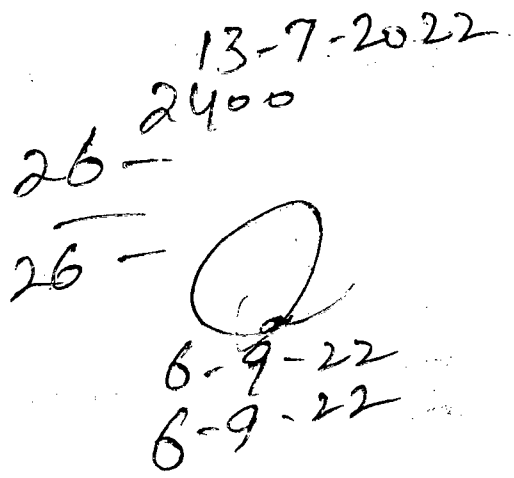 13-7-2022
2400
26-
26-
6-9-22
6-9-22